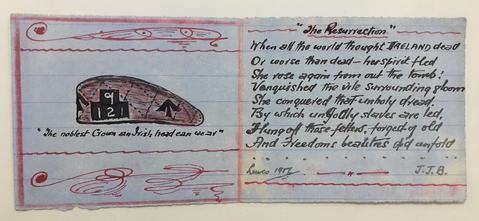 9
12
"The noblest Crown an Irish head can wear"
"The Resurrection"
When all the world thought IRELAND dead
Or worse than dead – her spirit fled
She rose again from out the tomb!
Vanquished the vile surrounding gloom
She conquered that unholy dread.
By which ungodly slaves are led,
Flung off those fetters, forged of old
And Freedoms beauties did unfold
Lewes 1917
J.J.B.